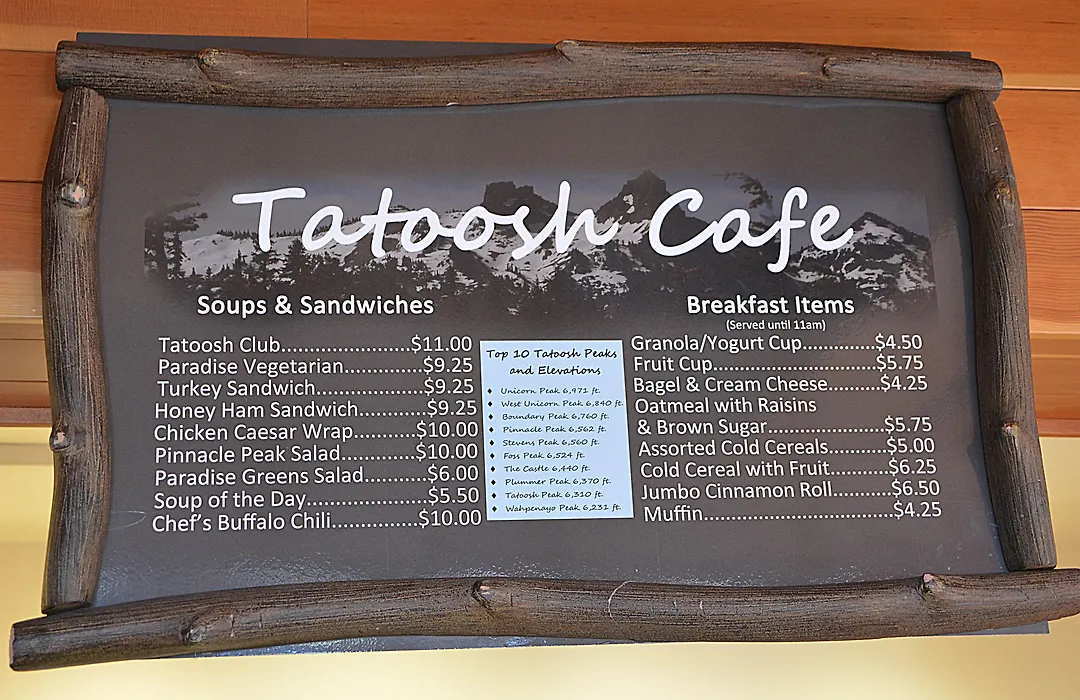 Tatoosh Cafe
Soups & Sandwiches
Tatoosh Club......................$11.00
Paradise Vegetarian.............$9.25
Turkey Sandwich..................$9.25
Honey Ham Sandwich...........$9.25
Chicken Caesar Wrap............$10.00
Pinnacle Peak Salad..............$10.00
Paradise Greens Salad..........$6.00
Soup of the Day....................$5.50
Chef's Buffalo Chili..............$10.00
Top 10 Tatoosh Peaks
and Elevations
♦ Unicorn Peak 6,971 ft.
♦ West Unicorn Peak 6,840 ft.
♦ Boundary Peak 6,760 ft.
♦ Pinnacle Peak 6,562 ft.
♦ Stevens Peak 6,560 ft.
♦ Foss Peak 6,524 ft.
♦ The Castle 6,440 ft.
♦ Plummer Peak 6,370 ft.
♦ Tatoosh Peak 6,310 ft.
♦ Wahpenayo Peak 6,231 ft.
Breakfast Items
(Served until 11am)
Granola/Yogurt Cup............$4.50
Fruit Cup...........................$5.75
Bagel & Cream Cheese.........$4.25
Oatmeal with Raisins
& Brown Sugar...................$5.75
Assorted Cold Cereals.........$5.00
Cold Cereal with Fruit.........$6.25
Jumbo Cinnamon Roll.........$6.50
Muffin..............................$4.25